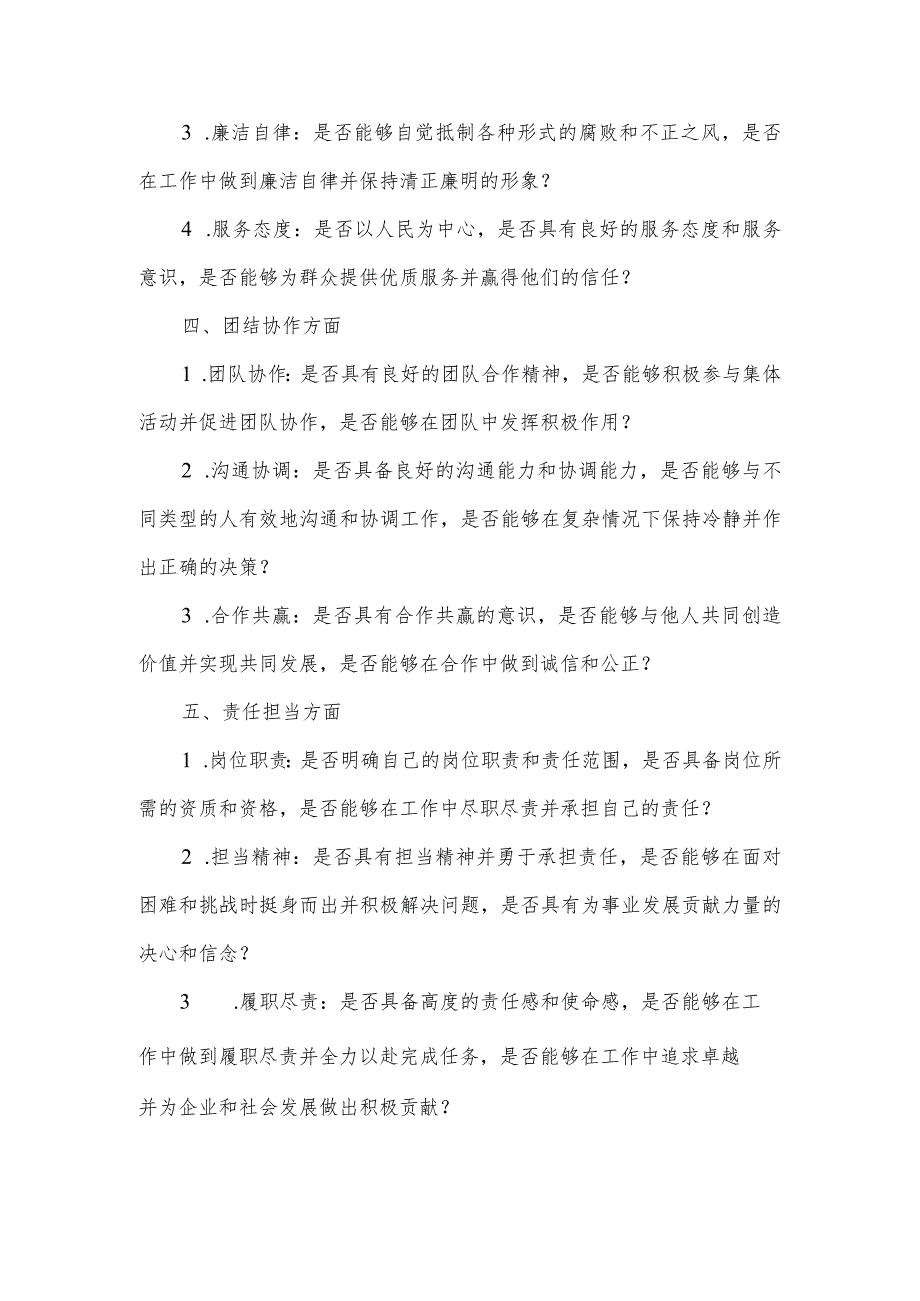 3 .廉洁自律：是否能够自觉抵制各种形式的腐败和不正之风，是否
在工作中做到廉洁自律并保持清正廉明的形象？
4 .服务态度：是否以人民为中心，是否具有良好的服务态度和服务
意识，是否能够为群众提供优质服务并赢得他们的信任？
四、团结协作方面
1 .团队协作：是否具有良好的团队合作精神，是否能够积极参与集体
活动并促进团队协作，是否能够在团队中发挥积极作用？
2 .沟通协调：是否具备良好的沟通能力和协调能力，是否能够与不
同类型的人有效地沟通和协调工作，是否能够在复杂情况下保持冷静并作
出正确的决策？
3 .合作共赢：是否具有合作共赢的意识，是否能够与他人共同创造
价值并实现共同发展，是否能够在合作中做到诚信和公正？
五、责任担当方面
1 .岗位职责：是否明确自己的岗位职责和责任范围，是否具备岗位所
需的资质和资格，是否能够在工作中尽职尽责并承担自己的责任？
2 .担当精神：是否具有担当精神并勇于承担责任，是否能够在面对
困难和挑战时挺身而出并积极解决问题，是否具有为事业发展贡献力量的
决心和信念？
3 .履职尽责：是否具备高度的责任感和使命感，是否能够在工
作中做到履职尽责并全力以赴完成任务，是否能够在工作中追求卓越
并为企业和社会发展做出积极贡献？